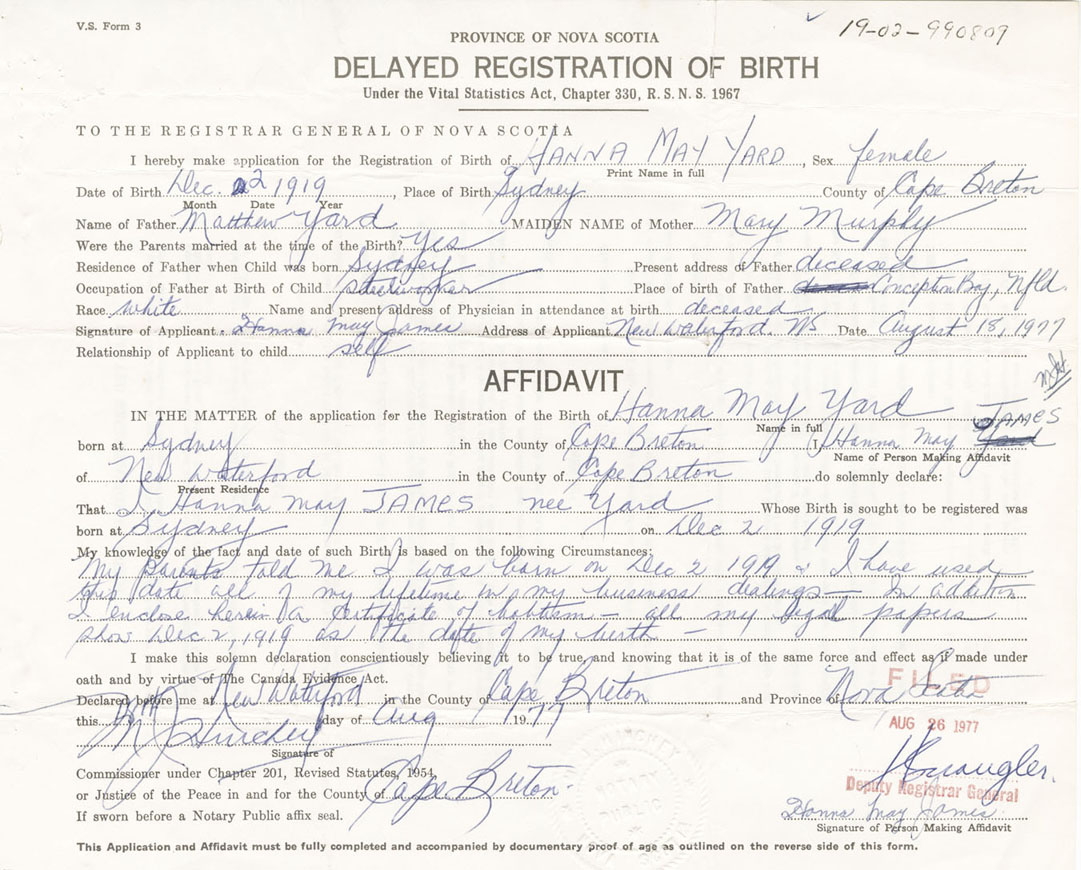 V.S. Form 3
19-02-990809
PROVINCE OF NOVA SCOTIA
DELAYED REGISTRATION OF BIRTH
Under the Vital Statistics Act, Chapter 330, R. S. N. S. 1967
TO THE REGISTRAR GENERAL OF NOVA SCOTIA
I hereby make application for the Registration of Birth of HANNA MAY YARD, Sex female
Print Name in full
Date of Birth Dec. 2 1919, Place of Birth Sydney County of Cape Breton
Month Date Year
Name of Father Matthew Yard MAIDEN NAME of Mother Mary Murphy
Were the Parents married at the time of the Birth? Yes
Residence of Father when Child was born Sydney Present address of Father deceased
Occupation of Father at Birth of Child steelworker Place of birth of Father Conception Bay, Nfld.
Race white Name and present address of Physician in attendance at birth deceased
Signature of Applicant Hanna May James Address of Applicant New Waterford, NS Date August 18, 1977
Relationship of Applicant to child self
AFFIDAVIT
IN THE MATTER of the application for the Registration of the Birth of Hanna May Yard
Name in full
JAMES
born at Sydney in the County of Cape Breton I, Hanna May Yard
Name of Person Making Affidavit
of New Waterford in the County of Cape Breton do solemnly declare:
Present Residence
That I, Hanna May JAMES nee Yard Whose Birth is sought to be registered was
born at Sydney on Dec 2 1919
My knowledge of the fact and date of such Birth is based on the following Circumstances:
My Parents told me I was born on Dec 2 1919 & I have used
this date all of my lifetime in my business dealings — In addition
I enclose herein a Certificate of baptism — all my legal papers
show Dec 2, 1919 as the date of my birth —
I make this solemn declaration conscientiously believing it to be true, and knowing that it is of the same force and effect as if made under
oath and by virtue of The Canada Evidence Act.
Declared before me at New Waterford in the County of Cape Breton and Province of Nova Scotia
FILED
this day of Aug 1977
AUG 26 1977
Signature of
Commissioner under Chapter 201, Revised Statutes, 1954
or Justice of the Peace in and for the County of Cape Breton.
Deputy Registrar General
If sworn before a Notary Public affix seal.
Hanna May James
Signature of Person Making Affidavit
This Application and Affidavit must be fully completed and accompanied by documentary proof of age as outlined on the reverse side of this form.